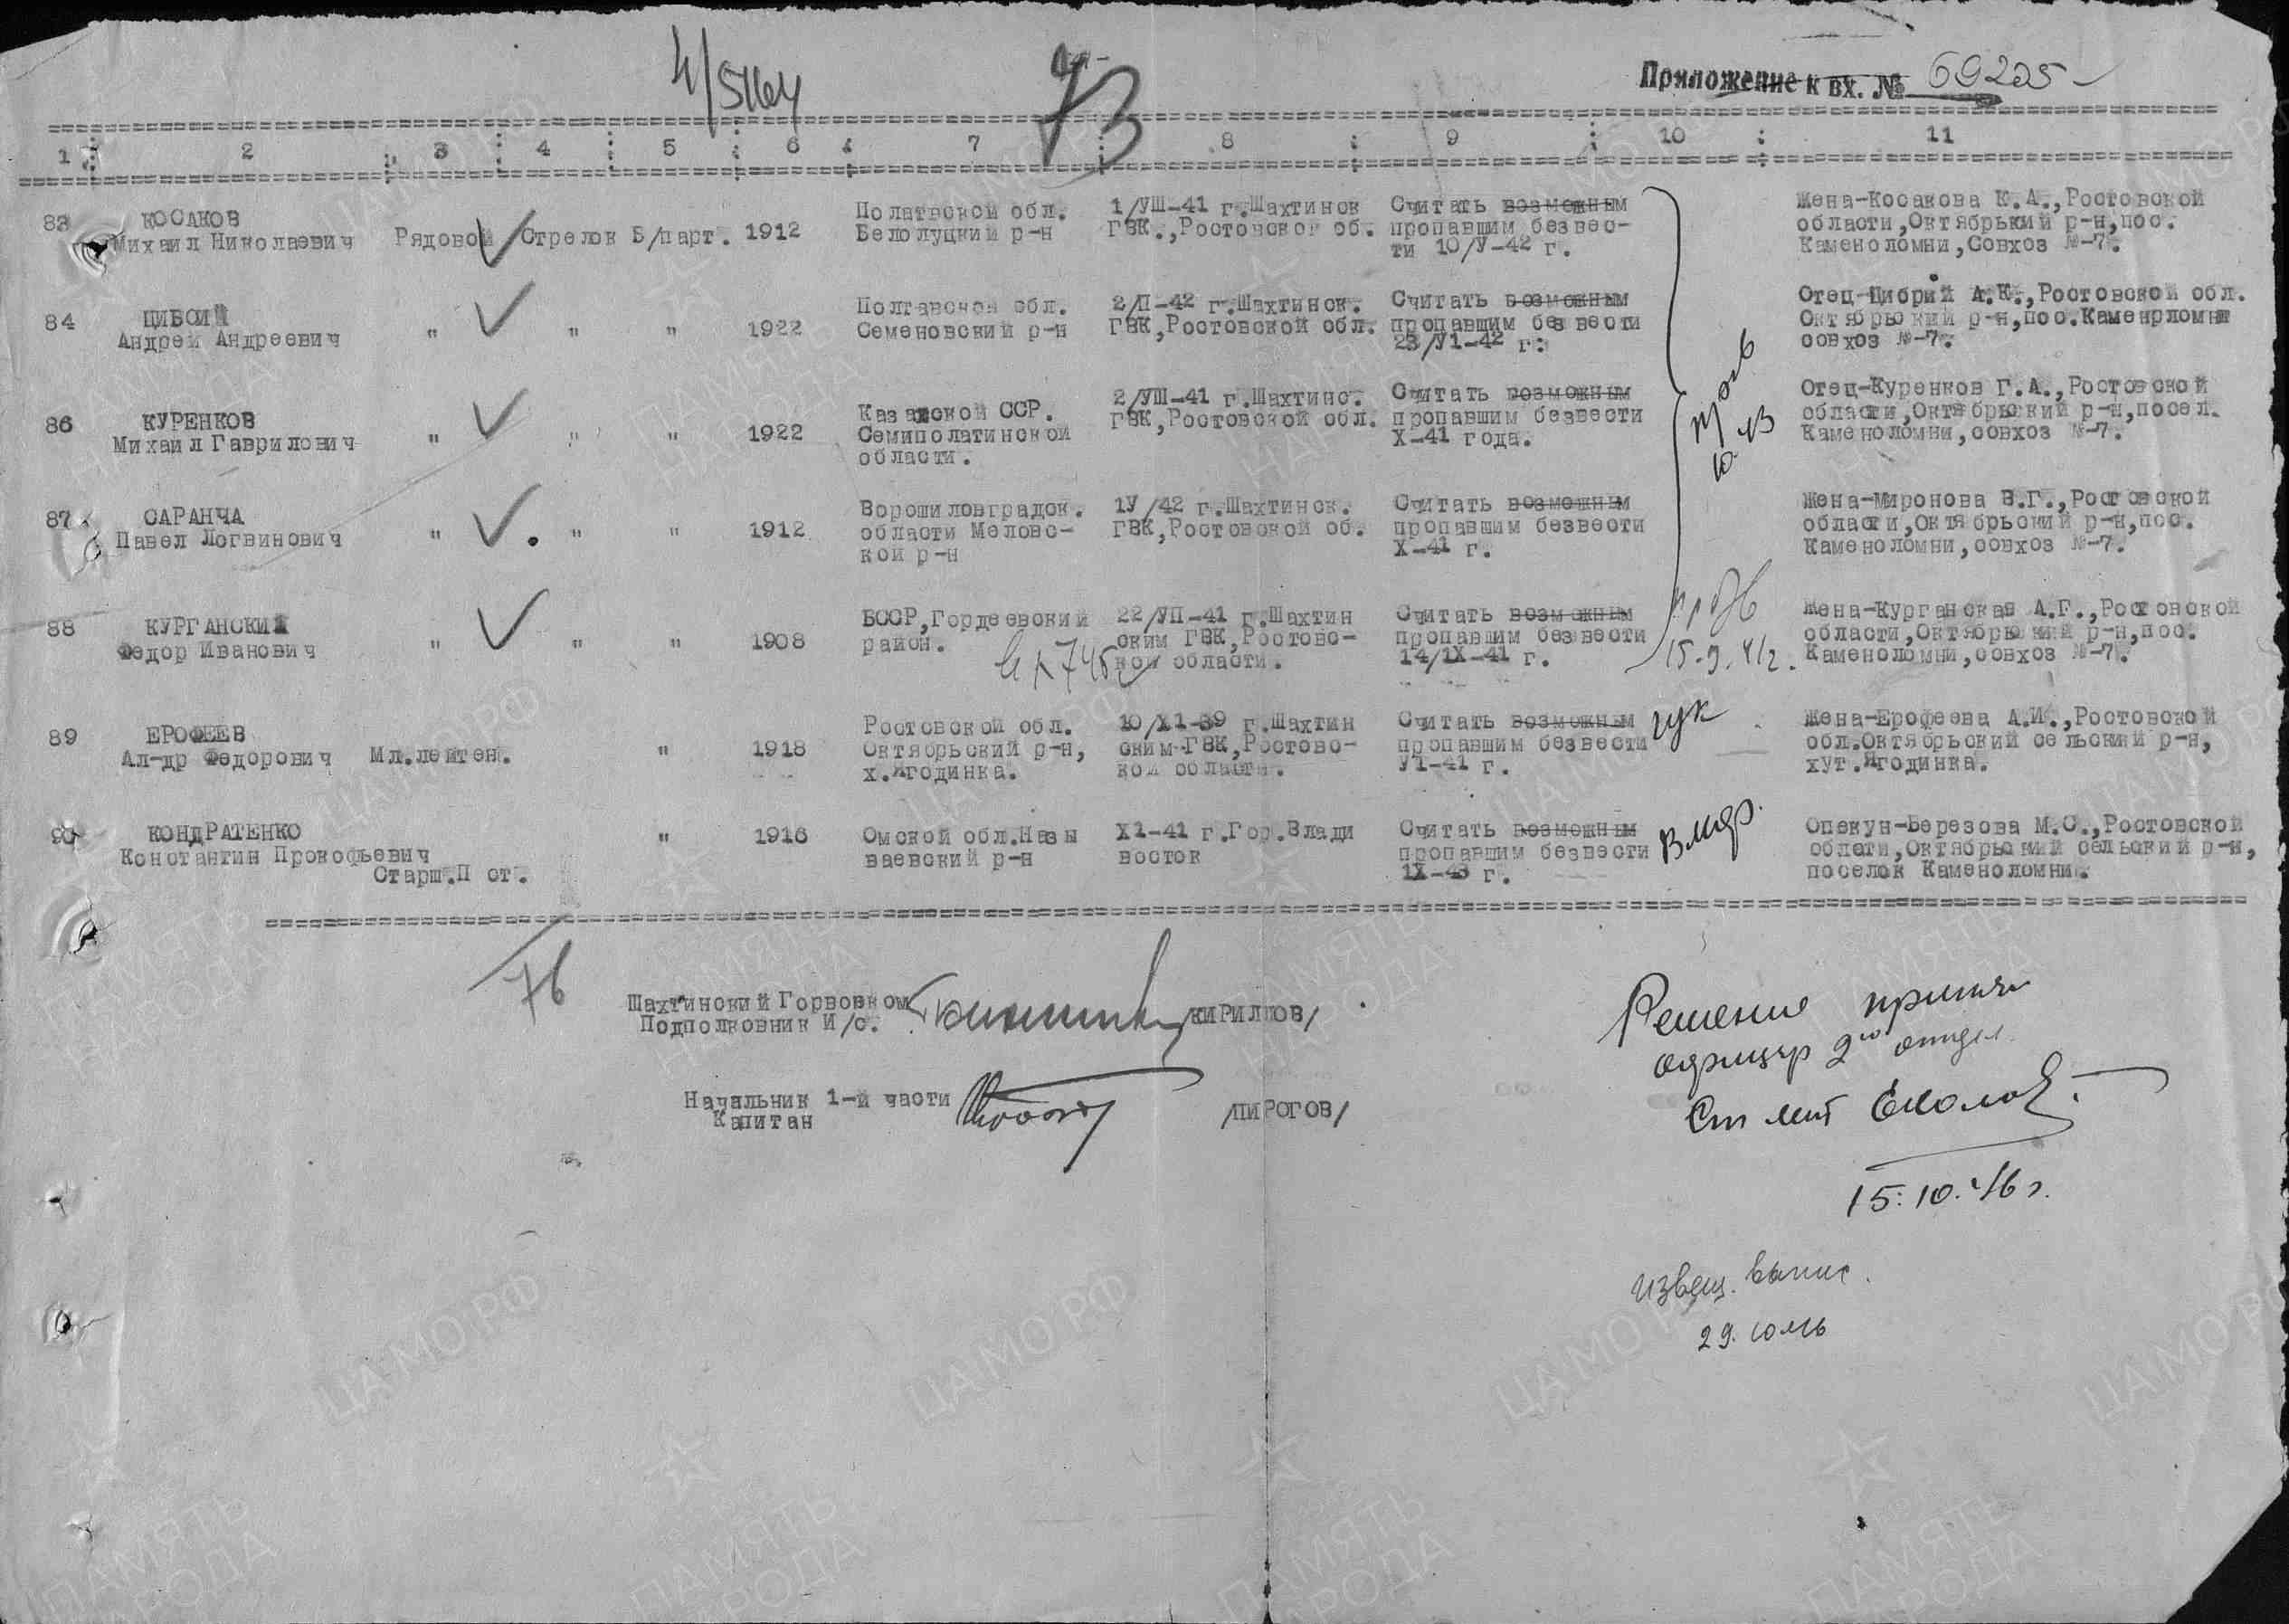 Приложение к вх. № 69205
73
1 2 3 4 5 6 7 8 9 10 11
83 КОСАКОВ
Михаил Николаевич Рядовой Стрелок Б/парт. 1912
Полатвской обл.
Белолуцкий р-н
1/УШ-41 г.Шахтинск
ГВК.,Ростовског об.
Считать возможным
пропавшим безвес-
ти 10/У-42 г.
Жена-Косакова К.А.,Ростовской
области,Октябрький р-н,пос.
Каменоломни,Совхоз №-7.
84 ЦИБОИЙ
Андрей Андреевич " " " 1922
Полтавской обл.
Семеновский р-н
2/П-42 г.Шахтинск.
ГВК,Ростовской обл.
Считать возможным
пропавшим без вести
23/У1-42 г.
Отец-Цибрий А.К.,Ростовской обл.
Октябрьский р-н,пос.Каменрломни
совхоз №-7.
86 КУРЕНКОВ
Михаил Гаврилович " " " 1922
Казахской ССР.
Семиполатинской
области.
2/УШ-41 г.Шахтинс.
ГВК,Ростовской обл.
Считать возможным
пропавшим безвести
Х-41 года.
Отец-Куренков Г.А.,Ростовской
области,Октябрьский р-н,посел.
Каменоломни,совхоз №-7.
87 САРАНЧА
Павел Логвинович " " " 1912
Ворошиловградск.
области Меловс-
кой р-н
1У/42 г.Шахтинск.
ГВК,Ростовской об.
Считать возможным
пропавшим безвести
Х-41 г.
Жена-Миронова В.Г.,Ростовской
области,Октябрьский р-н,пос.
Каменоломни,совхоз №-7.
88 КУРГАНСКИЙ
Федор Иванович " " " 1908
БССР,Гордеевский
район.
22/УП-41 г.Шахтин
ским ГВК,Ростовс-
кой области.
Считать возможным
пропавшим безвести
14/1Х-41 г.
15-9.41г.
Жена-Курганская А.Г.,Ростовской
области,Октябрьский р-н,пос.
Каменоломни,совхоз №-7.
89 ЕРОФЕЕВ
Ал-др Федорович Мл.лейтен. " 1918
Ростовской обл.
Октябрьский р-н,
х.Ягодинка.
10/Х1-39 г.Шахтин
ским ГВК,Ростовс-
кой области.
Считать возможным
пропавшим безвести
У1-41 г.
гук
Жена-Ерофеева А.И.,Ростовской
обл.Октябрьский сельский р-н,
хут.Ягодинка.
90 КОНДРАТЕНКО
Константин Прокофьевич
Старш.П ст. " 1916
Омской обл.Назы
ваевский р-н
Х1-41 г.Гор.Влади
восток
Считать возможным
пропавшим безвести
1Х-43 г.
Опекун-Березова М.С.,Ростовской
облсти,Октябрьский сельский р-н,
поселок Каменоломни.
76
Шахтинский Горвоенком
Подполковник И/с. /КИРИЛЛОВ/
Начальник 1-й части
Капитан /ПИРОГОВ/
Решение принял
офицер 2го отдел
Ст лит Соколов
15.10.46 г.
Извещ. выпис.
ЦАМО РФ
ПАМЯТЬ НАРОДА